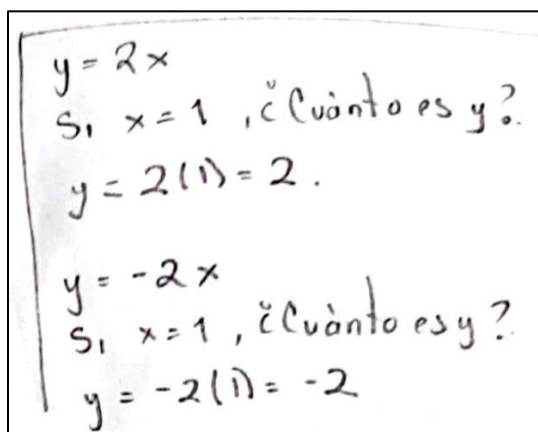 y = 2x
Si x = 1, ¿Cuánto es y?
y = 2(1) = 2.
y = -2x
Si x = 1, ¿Cuánto es y?
y = -2(1) = -2